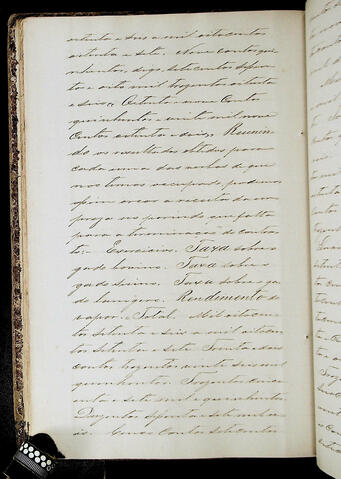 oitenta e seis a mil oitocentos
oitenta e sete. Nove contos qui-
nhentos, digo, sete contos sessen-
ta e oito mil trezentos oitenta
e seis. Oitenta e nove contos
quinhentos e vinte mil nove
centos oitenta e dois. Reunin-
do os resultados obtidos para
cada uma das verbas de que
nos temos occupado, podemos
assim orçar a receita da em
preza no periodo que falta
para a terminação do contra-
to: Exercicios. Taxa sobre
gado bovino. Taxa sobre
gado suino. Taxa sobre ga
do lanigero. Rendimento do
vapor. Total. Mil oitocen-
tos setenta e seis a mil oitocen
tos setenta e sete. Trinta e dois
contos trezentos vinte seis mil
quinhentos. Trezentos cincoen
ta e sete mil e quinhentos.
Duzentos setenta e sete mil e
reis. Cinco contos setecentos